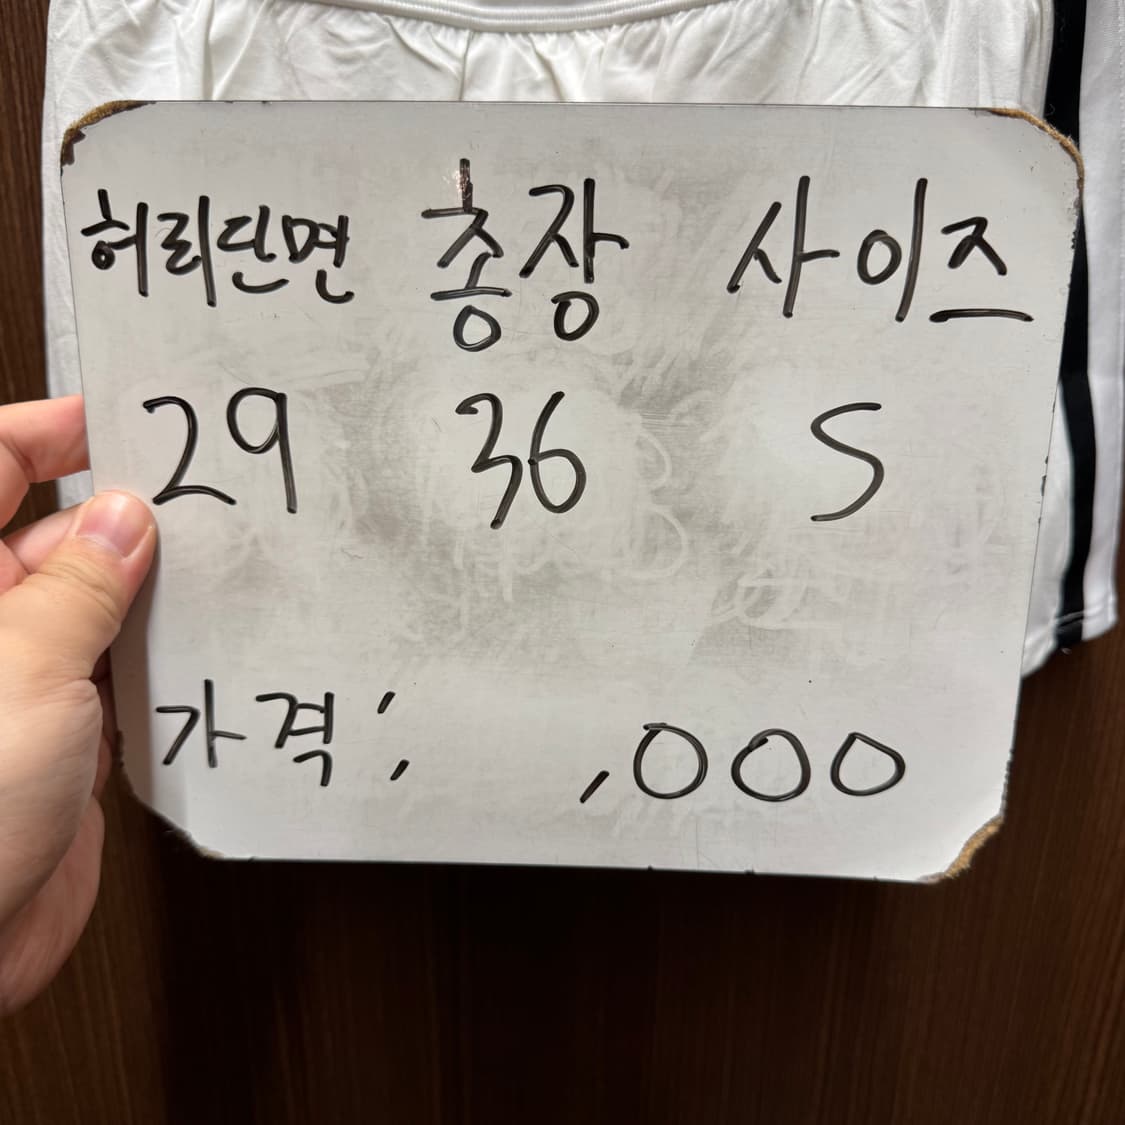 허리단면 총장 사이즈
29 36 S
가격: ,000